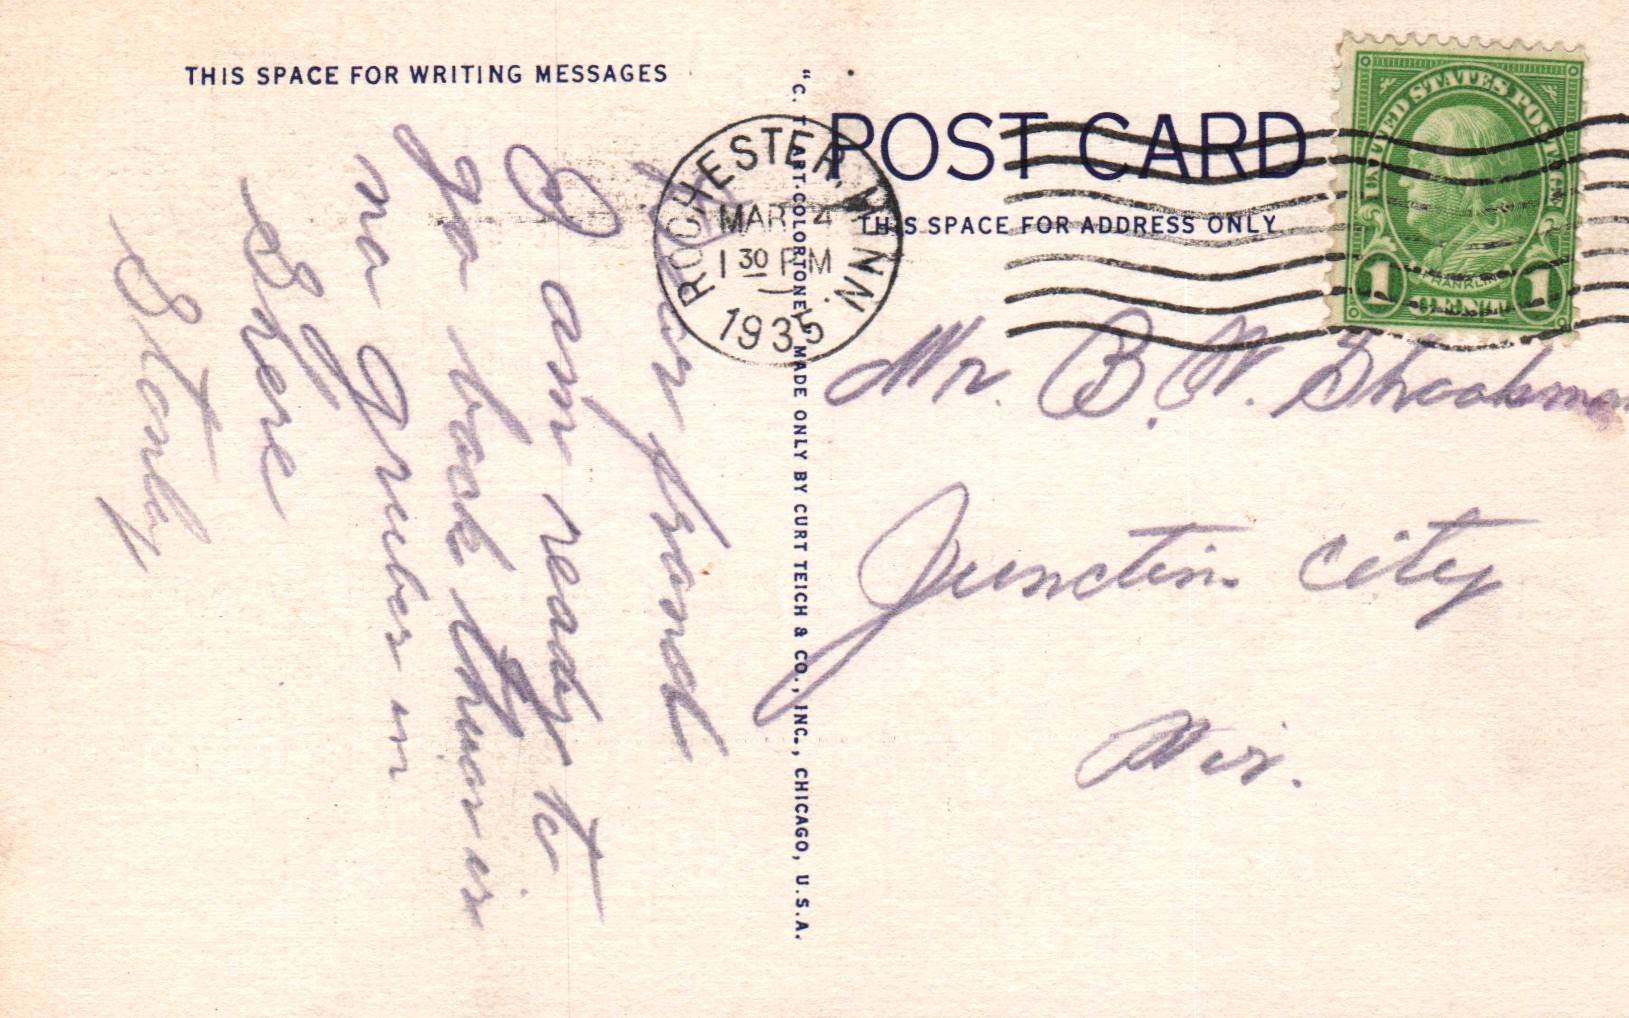 THIS SPACE FOR WRITING MESSAGES
friend
I am ready to
go back thear is
no Gruber in
here
Stanly
"C. T. ART-COLORTONE" MADE ONLY BY CURT TEICH & CO., INC., CHICAGO, U.S.A.
ROCHESTER, MINN.
MAR 4
1 30 PM
1935
POST CARD
THIS SPACE FOR ADDRESS ONLY
UNITED STATES POSTAGE
FRANKLIN
1 CENT 1
Mr. B. W.
Junction City
Wis.